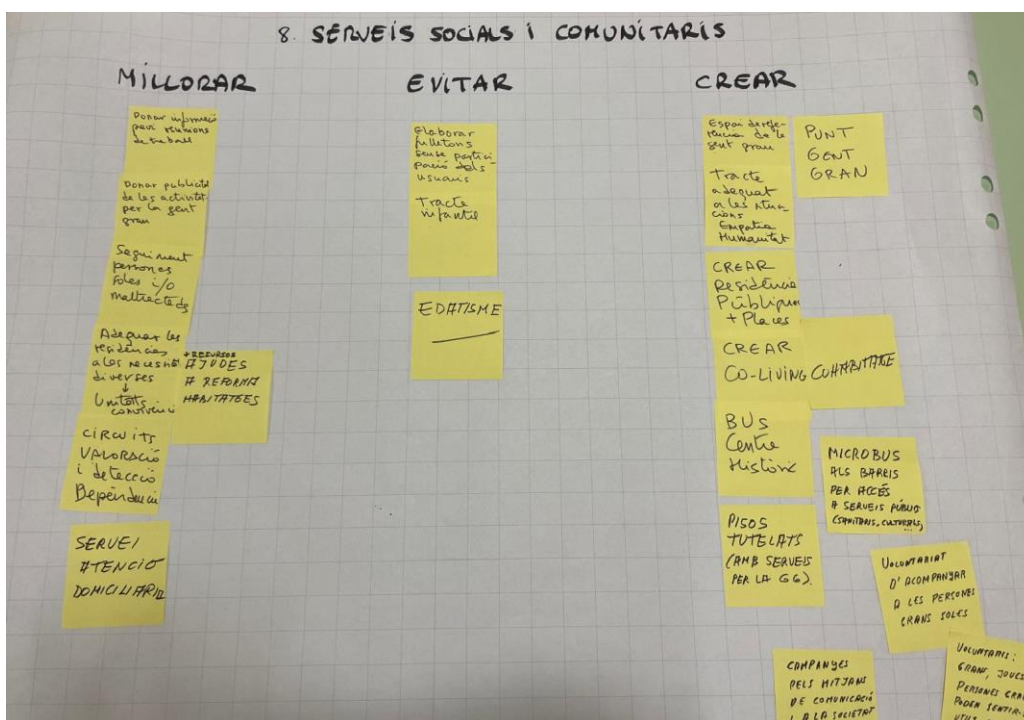 8. SERVEIS SOCIALS I COMUNITARIS
MILLORAR
Donar informació
previ reunions
de treball
Donar publicitat
de les activitats
per la gent
gran
Seguiment
persones
soles i/o
maltractades
Adequar les
residències
a les necessit
diverses
↓
Unitats
convivènci
+ RECURSOS
AJUDES
A REFORMA
HABITATGES
CIRCUITS
VALORACIÓ
i detecció
Dependènci
SERVEI
ATENCIÓ
DOMICILIARIA
EVITAR
Elaborar
fulletons
sense partici-
pació dels
usuaris
Tracte
infantil
EDATISME
CREAR
Espai de refe-
rència de la
gent gran
PUNT
GENT
GRAN
Tracte
adequat
a les situa-
cions
Empatia
Humanitat
CREAR
Residència
Públiques
+ Places
CREAR
CO-LIVING COHABITATGE
BUS
Centre
Històric
MICROBUS
ALS BARRIS
PER ACCÉS
A SERVEIS PÚBLICS
(SANITARIS, CULTURALS,
PISOS
TUTELATS
(AMB SERVEIS
PER LA GG).
VOLUNTARIAT
D'ACOMPANYAR
A LES PERSONES
GRANS SOLES
CAMPANYES
PELS MITJANS
DE COMUNICACIÓ
I A LA SOCIETAT
VOLUNTARIS:
GRANS, JOVES
PERSONES GRAN
PODEN SENTIR-